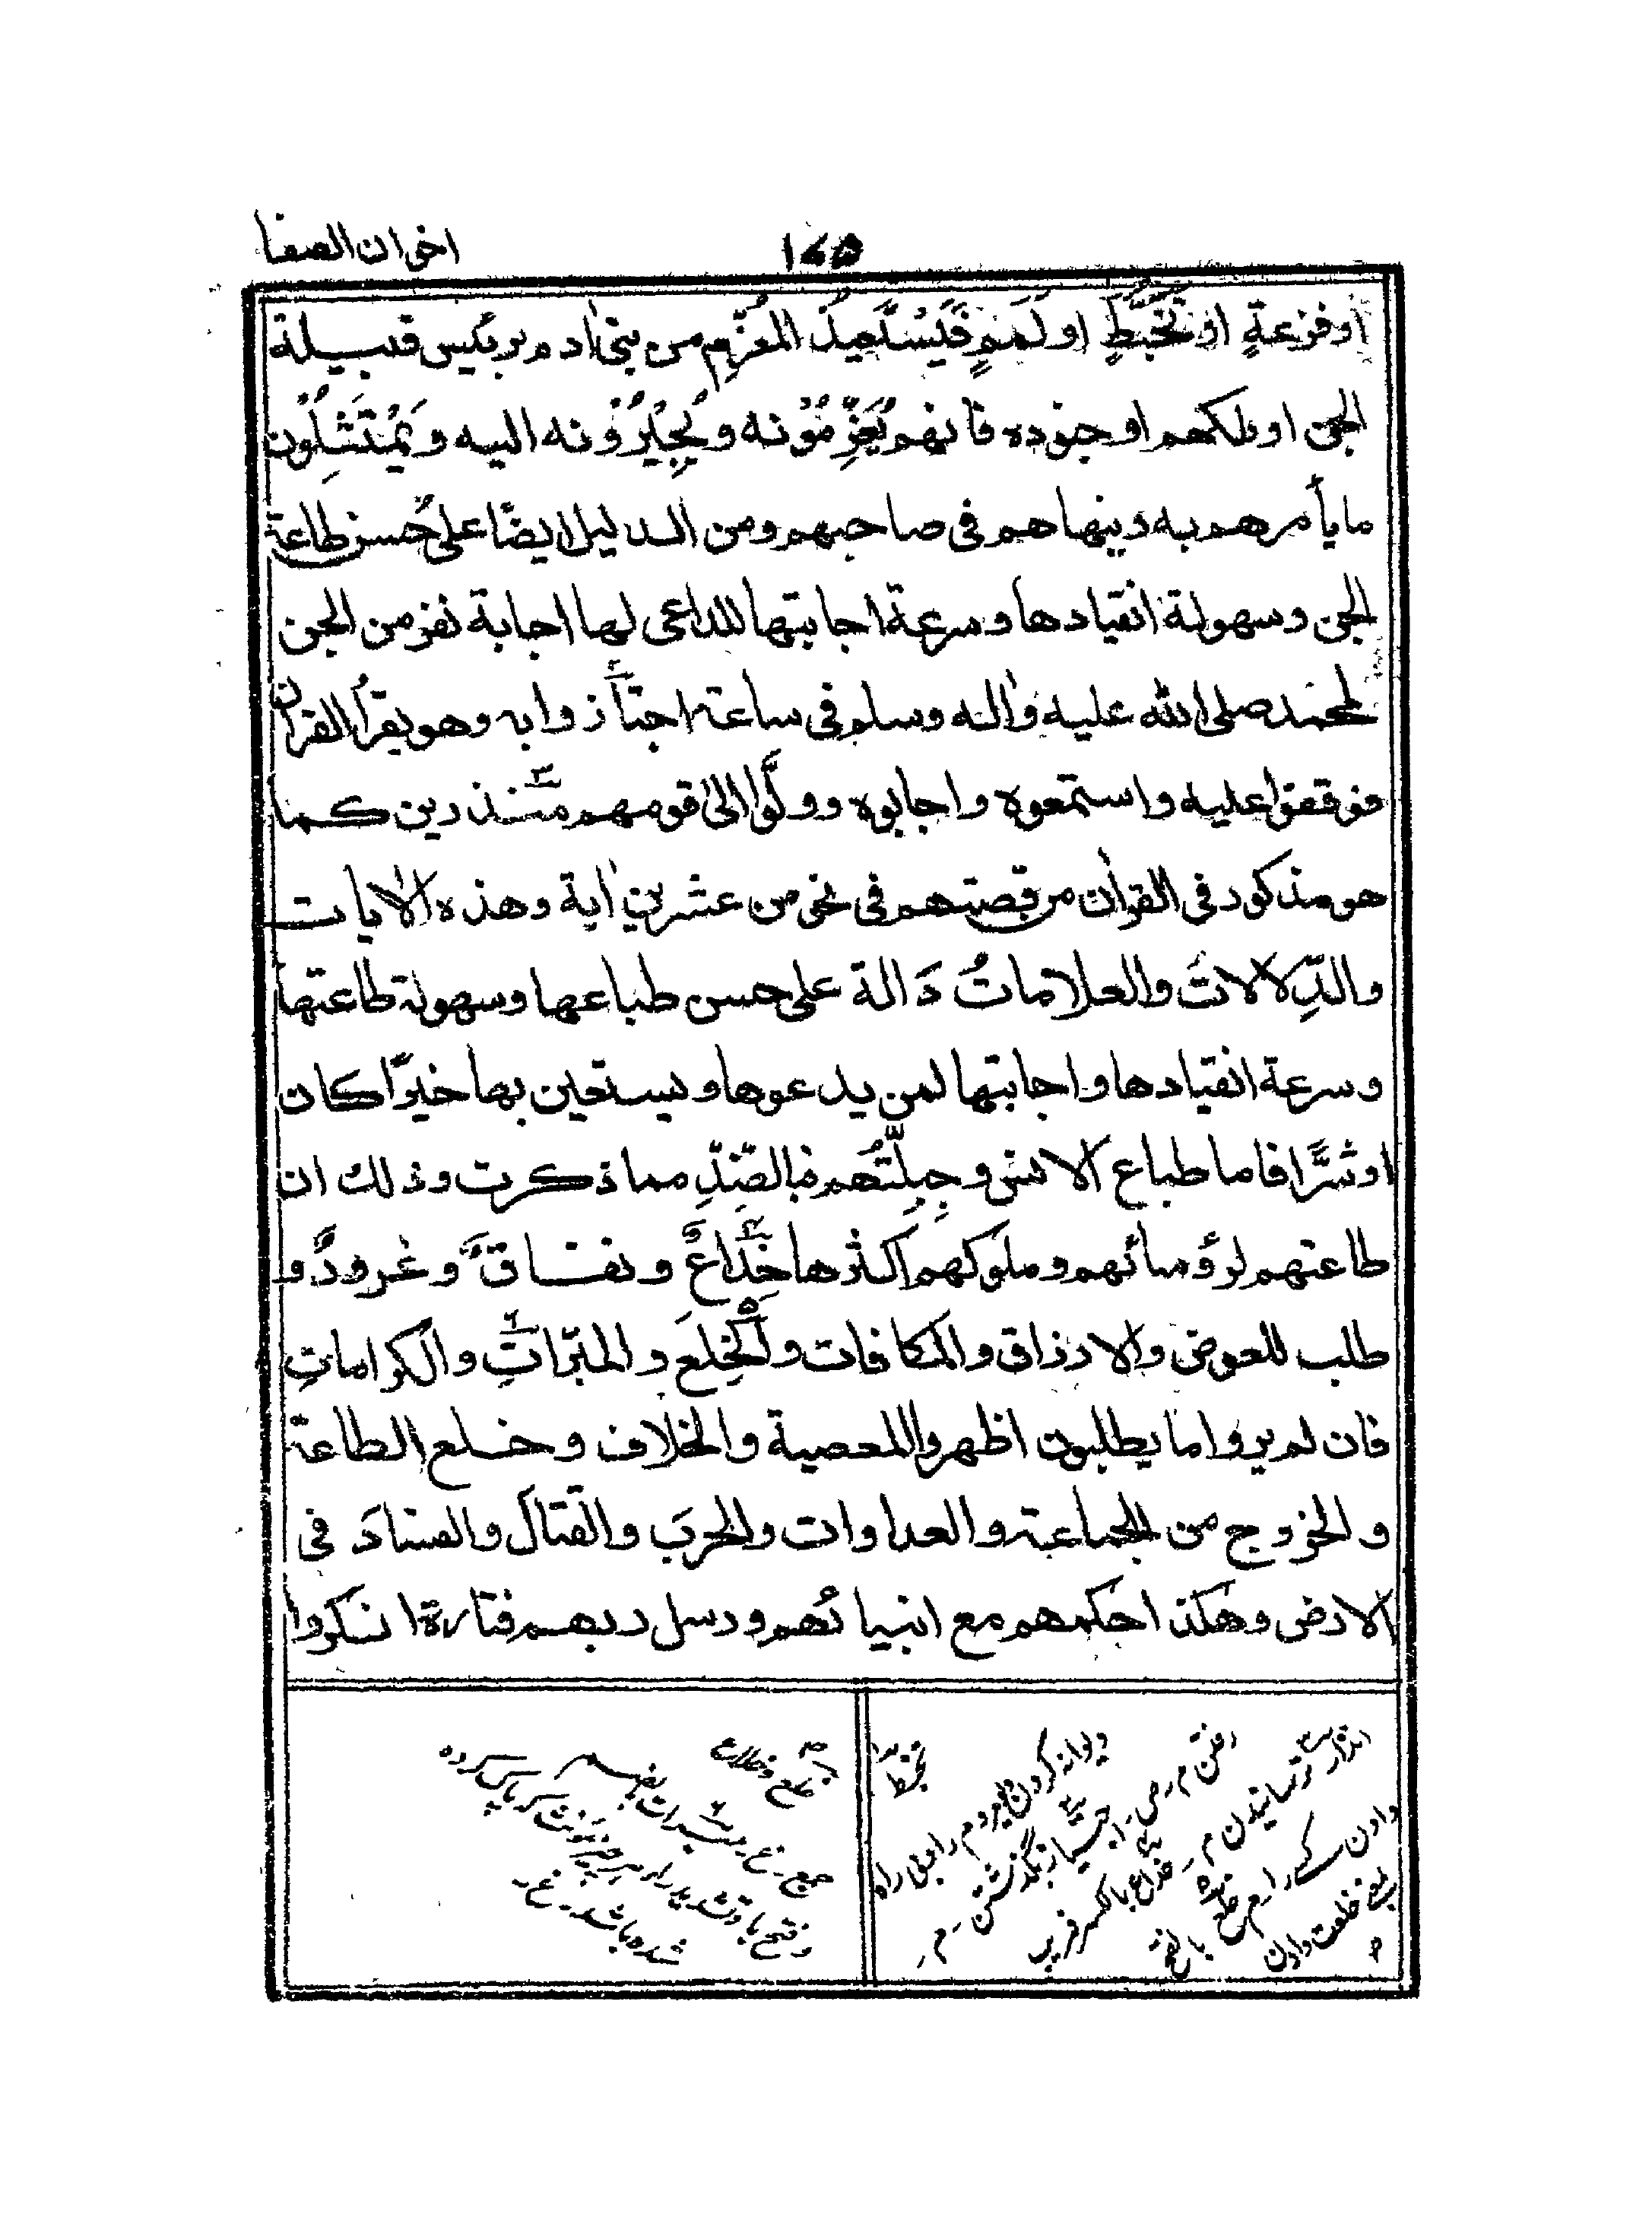 اخوان الصفا
۱۷۵
او فزعةٍ او تخبُّطٍ او لَمَمٍ فَيَسْتَعِيذُ المُعَزِّم من بنى اٰدم برئيس قبيلة
الجن او ملكهم او جنوده فانهم يُعَزِّمُوْنه ويُجِيْرُوْنه اليه ويَمْتَثِلُون
ما يأمرهم به وينهاهم فى صاحبهم ومن الدليل ايضًا على حُسن طاعة
الجن وسهولة انقيادها وسرعة اجابتها للداعى لها اجابة نفر من الجن
لمحمد صلى الله عليه واٰله وسلم فى ساعة اجتازوا به وهو يقرأ القراٰن
فوقفوا عليه واستمعوه واجابوه وولَّوا الىٰ قومهم منذرين كما
هو مذكور فى القراٰن من قصتهم فى نحو من عشرين اٰية وهذه الاٰيات
والدِّلالاتُ والعلاماتُ دَالة على حسن طباعها وسهولة طاعتها
وسرعة انقيادها واجابتها لمن يدعوها ويستعين بها خيرًا كان
او شرًّا فاما طباع الانس وجِبِلَّتُهم فبالضِّدِّ مما ذكرت وذلك ان
طاعتهم لرؤسائهم وملوكهم اكثرها خِدَاعٌ ونفاقٌ وغرورٌ و
طلب للعوض والارزاق والمكافات والخِلَع والمبرّاتِ والكراماتِ
فان لم يروا ما يطلبون اظهروا المعصية والخلاف وخلع الطاعة
والخروج من الجماعة والعداوات والحرب والقتالَ والفسادَ فى
الارض وهكذا حكمهم مع انبيائهم ورسل ربهم فتارة انكروا
تخبط
ديوانه كردن ديو مردم را
اجتياز بگذشتن م
خداع بالكسر فريب
انذار ترسانيدن م
خلعت دادن